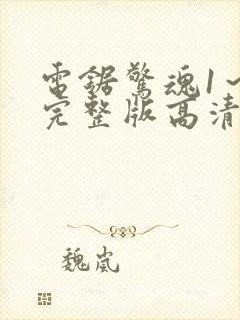 電鋸驚魂1一
完整版高清
魏嵐